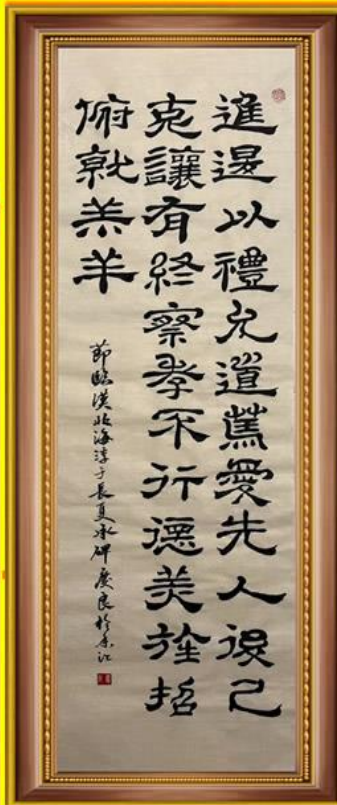 進退以禮允道篤愛先人後己
克讓有終察孝不行德美旌招
俯就羔羊
節臨漢北海淳于長夏承碑慶良於江